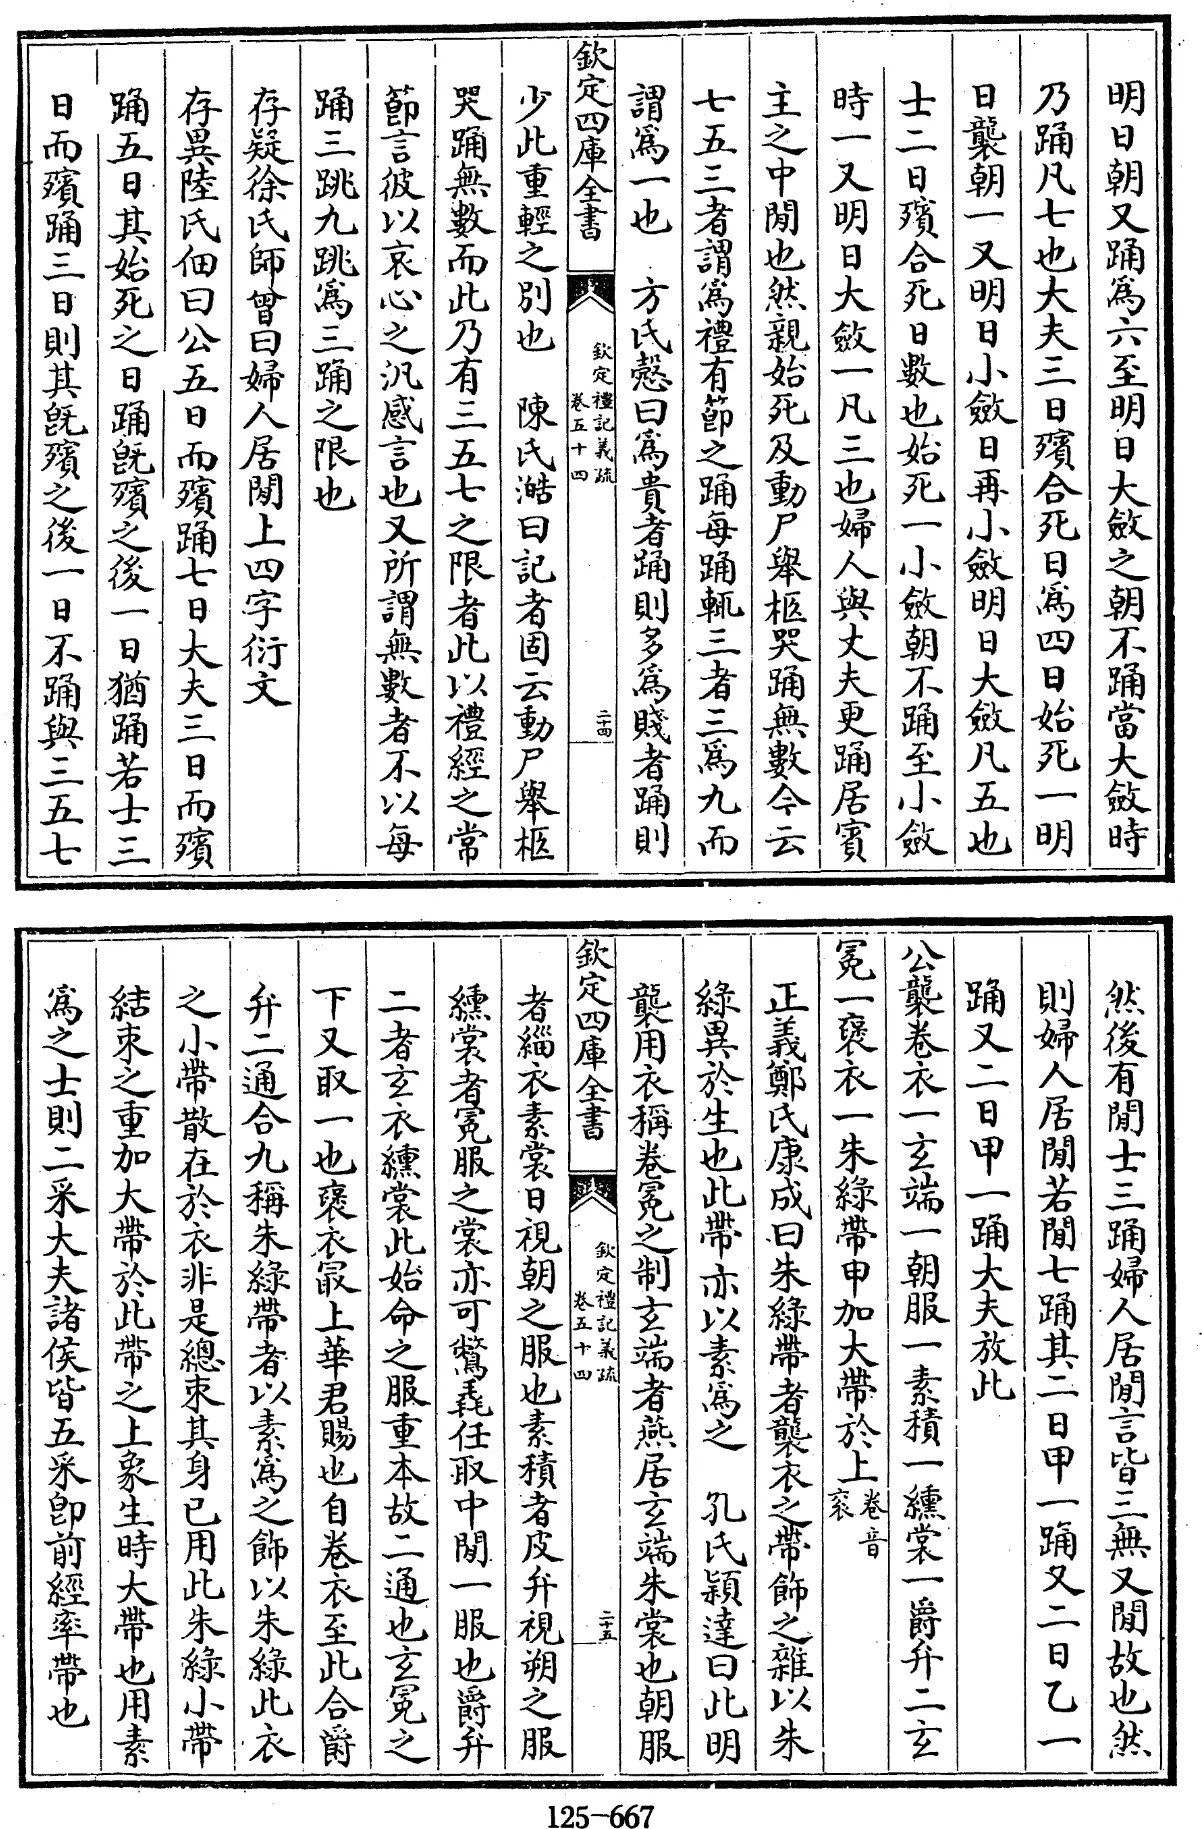 明日朝又踊為六至明日大斂之朝不踊當大斂時
乃踊凡七也大夫三日殯合死日為四日始死一明
日襲朝一又明日小斂日再小斂明日大斂凡五也
士二日殯合死日數也始死一小斂朝不踊至小斂
時一又明日大斂一凡三也婦人與丈夫更踊居賓
主之中閒也然親始死及動尸舉柩哭踊無數今云
七五三者謂為禮有節之踊每踊輒三者三為九而
謂為一也　方氏慤曰為貴者踊則多為賤者踊則
欽定四庫全書
欽定禮記義疏
卷五十四
二十四
少此重輕之別也　陳氏澔曰記者固云動尸舉柩
哭踊無數而此乃有三五七之限者此以禮經之常
節言彼以哀心之汎感言也又所謂無數者不以每
踊三跳九跳為三踊之限也
存疑徐氏師曾曰婦人居閒上四字衍文
存異陸氏佃曰公五日而殯踊七日大夫三日而殯
踊五日其始死之日踊既殯之後一日猶踊若士三
日而殯踊三日則其既殯之後一日不踊與三五七
然後有閒士三踊婦人居閒言皆三無又閒故也然
則婦人居閒若閒七踊其二日甲一踊又二日乙一
踊又二日甲一踊大夫放此
公襲卷衣一玄端一朝服一素積一纁裳一爵弁二玄
冕一褒衣一朱綠帶申加大帶於上卷音袞
正義鄭氏康成曰朱綠帶者襲衣之帶飾之雜以朱
綠異於生也此帶亦以素為之　孔氏穎達曰此明
襲用衣稱卷冕之制玄端者燕居玄端朱裳也朝服
欽定四庫全書
欽定禮記義疏
卷五十四
二十五
者緇衣素裳日視朝之服也素積者皮弁視朔之服
纁裳者冕服之裳亦可鷩毳任取中閒一服也爵弁
二者玄衣纁裳此始命之服重本故二通也玄冕之
下又取一也褒衣最上華君賜也自卷衣至此合爵
弁二通合九稱朱綠帶者以素為之飾以朱綠此衣
之小帶散在於衣非是總束其身已用此朱綠小帶
結束之重加大帶於此帶之上象生時大帶也用素
為之士則二采大夫諸侯皆五采卽前經率帶也
125-667